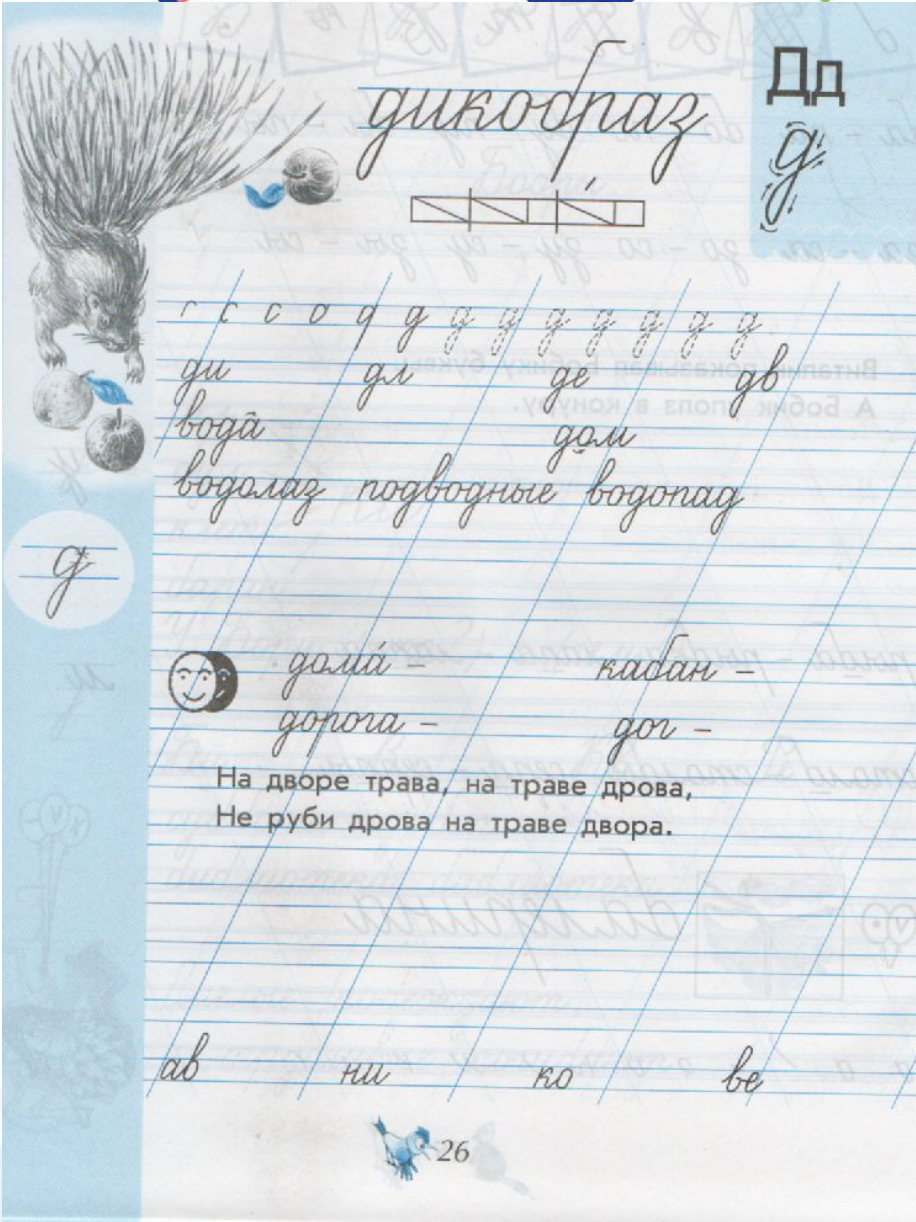 дикобраз
Дд
д
г с с о д д д д д д д д д
ди дл де дв
вода дом
водолаз подводные водопад
д
домá – кабан –
дорога – дог –
На дворе трава, на траве дрова,
Не руби дрова на траве двора.
ав ни ко ве
26